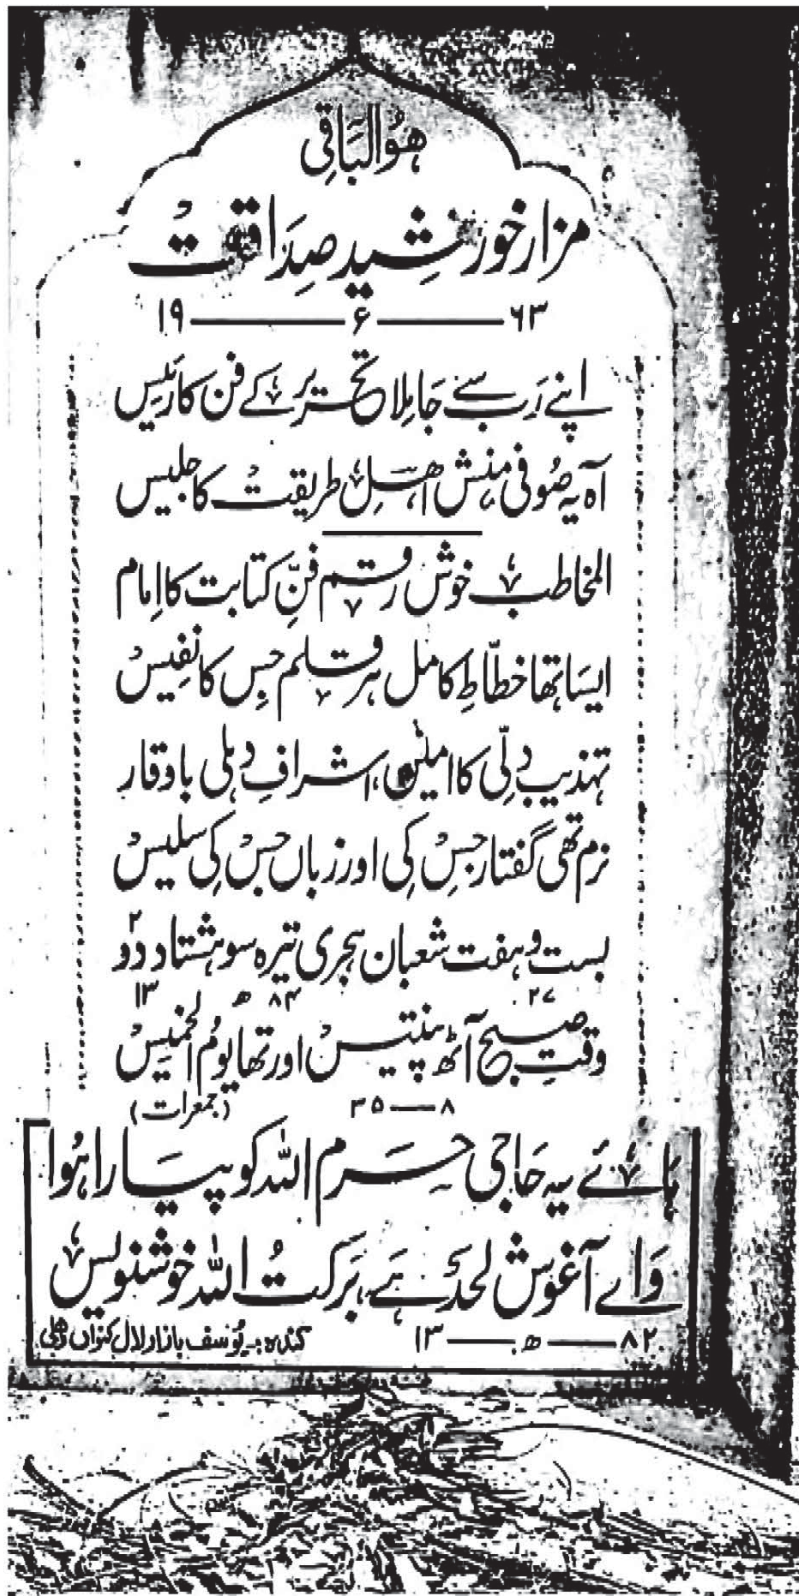 ھُوَالبَاقِی
مزار خورشید صِدَاقت
۱۹ ــــــ ۶ ــــــ ۶۳
اپنے رَب سے جَا مِلا تحریر کے فن کا رئیس
آہ یہ صُوفی منش اھلِ طریقت کا جلیس
المخاطب خوش رقم فنِّ کتابت کا اِمام
ایسا تھا خطّاطِ کامل ہر قلم جس کا نفِیس
تہذیب دلّی کا امین، اشرافِ دہلی باوقار
نرم تھی گفتار جِس کی اور زباں جس کی سلیس
بست و ہفت شعبان ہجری تیرہ سو ہشتاد دو ۲
۲۷ ۸۴ ھ ۱۳
وقتِ صبح آٹھ پنتیس اور تھا یومُ الخمیس
۸ ــــ ۳۵ (جمعرات)
ہائے یہ حَاجی حرم اللہ کو پیارا ہُوا
وَاے آغوش لحد ہے، بَرکتُ اللہ خوشنویس
۸۲ ــــــ ھ ــــــ ۱۳ کندہ بہ یُوسف بازار لال کنواں دھلی